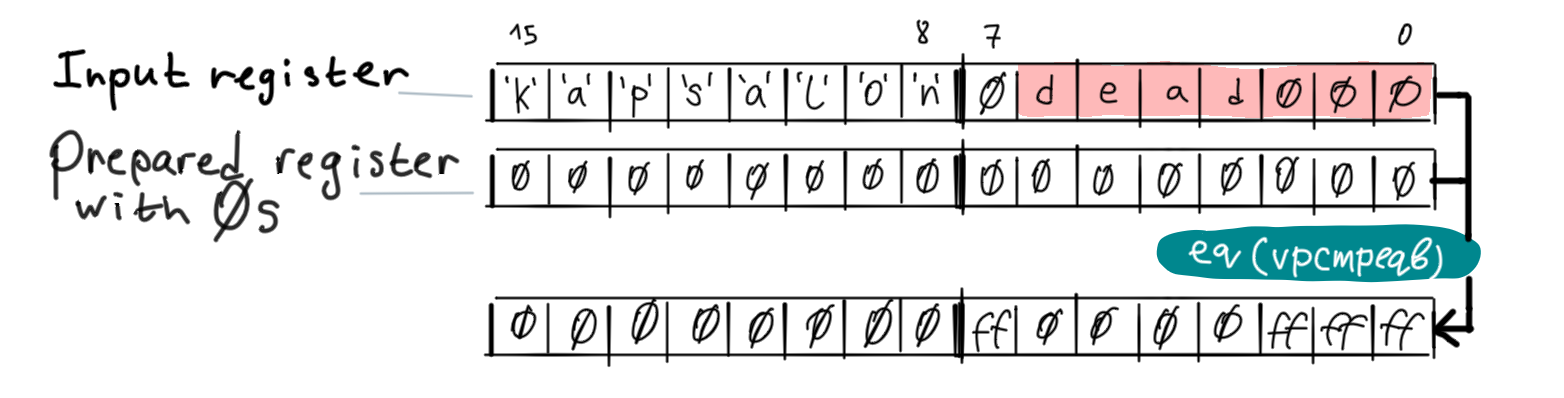 15 8 7 0
Input register 'k' 'a' 'p' 's' 'a' 'l' 'o' 'n' Ø d e a d Ø Ø Ø
Prepared register
with Øs
Ø Ø Ø Ø Ø Ø Ø Ø Ø Ø Ø Ø Ø Ø Ø Ø
eq (vpcmpeqb)
Ø Ø Ø Ø Ø Ø Ø Ø ff Ø Ø Ø Ø ff ff ff